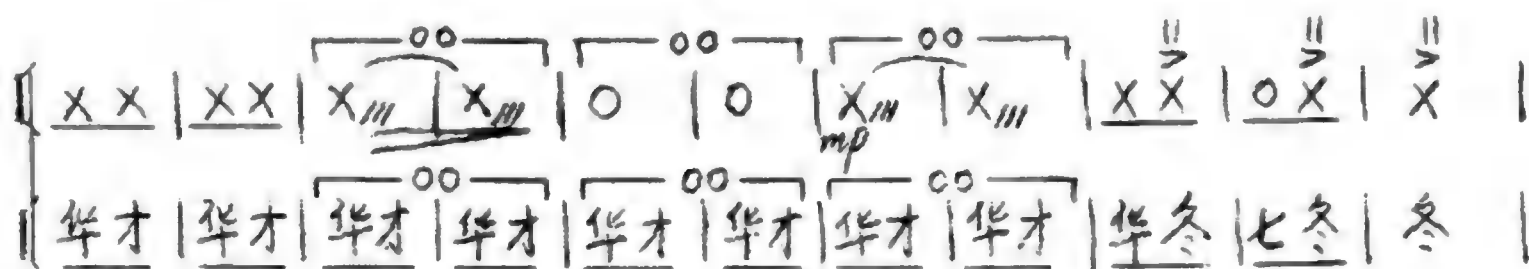 X X | X X | X | X | O | O | X | X | X X | O X | X |
mp
华才 | 华才 | 华才 | 华才 | 华才 | 华才 | 华才 | 华才 | 华冬 | 七冬 | 冬 |